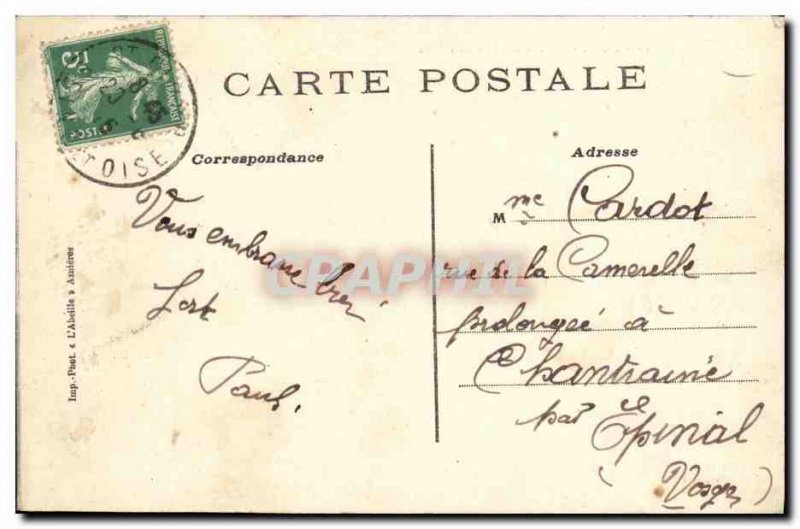 CARTE POSTALE
Correspondance
Adresse
Vous embrasse très
fort
Paul.
Mme Cardot
rue de la Camerelle
prolongée à
Chantraine
par Épinal
(Vosges)
Imp.-Phot. « L'Abeille » Asnières
REPUBLIQUE FRANÇAISE
POSTES
OISE
CPAPHIL